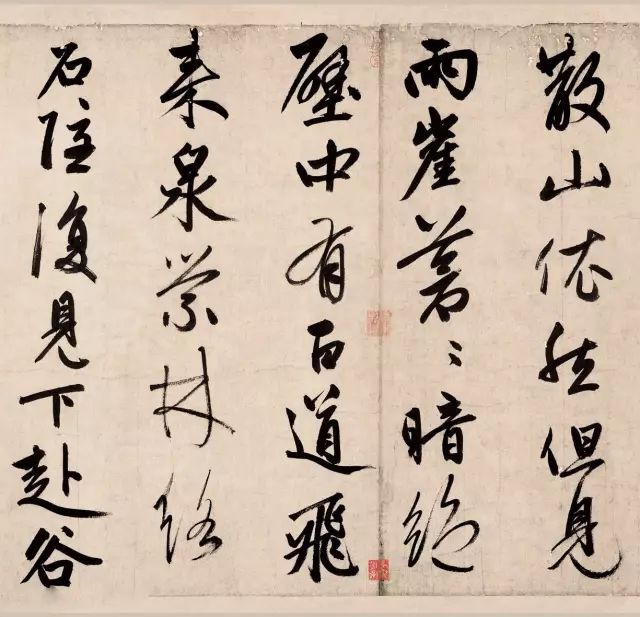 散山依然但見
兩崖蒼〻暗絕
壁中有百道飛
來泉縈林絡
石隱復見下赴谷